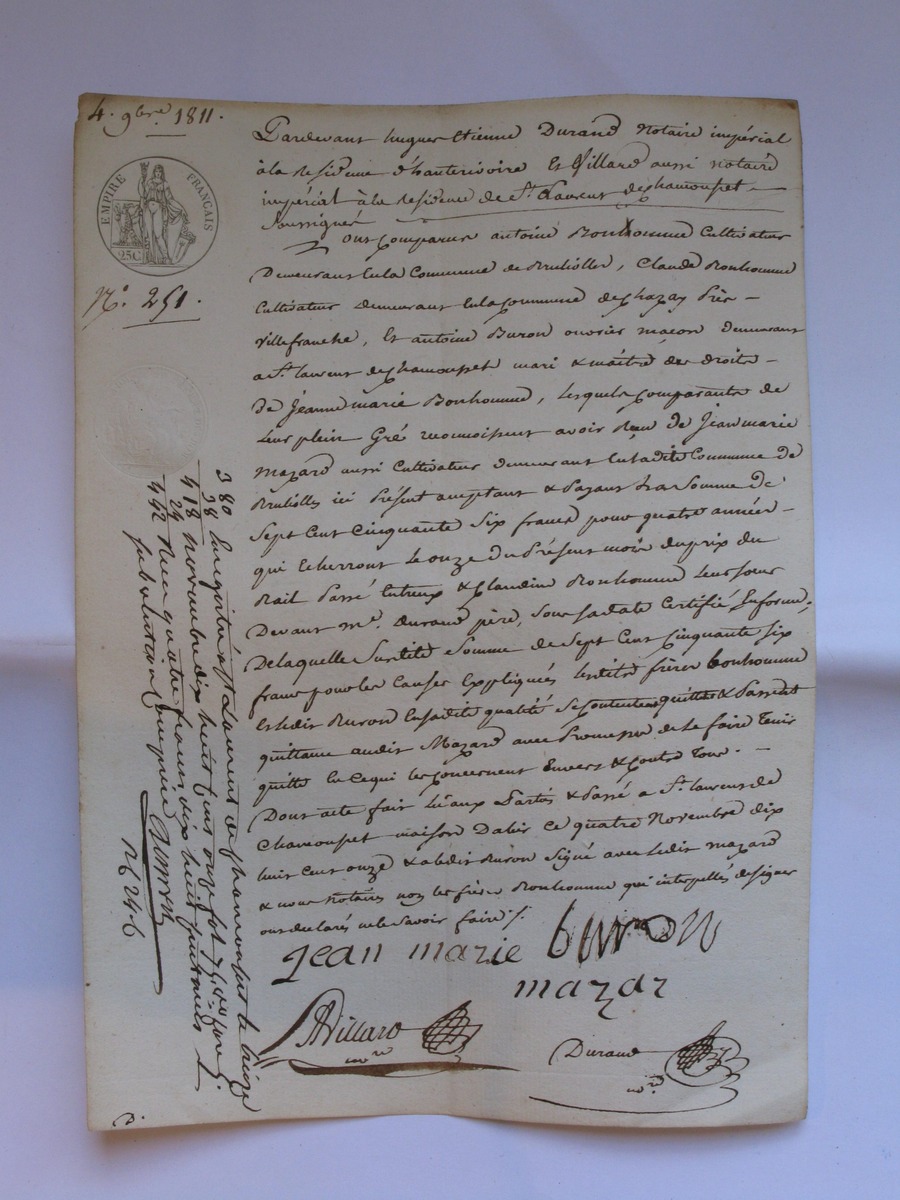 4. 9bre 1811.
EMPIRE FRANÇAIS
25C
N.o 251.
Pardevant hugues Etienne Durand Notaire impérial
à la residence d'hauterivoire Et Villard aussi notaire
impérial à la residence de St. Laurent de chamousset
Soussignés
ont comparus antoine Bonhomme Cultivateur
Demeurant En la Commune de Brullolles, Claude Bonhomme
Cultivateur demeurant En la commune de chazay Près
villefranche, Et antoine Buron ouvrier maçon demeurant
a St. laurent de chamousset mari & maître des droits
de Jeanne marie Bonhomme, Lesquels comparants de
Leur plein Gré reconnoissent avoir Reçu de Jean marie
Mazard aussi Cultivateur demeurant En ladite Commune de
Brullolles ici Présent acceptant & Payant La Somme de
Sept Cent Cinquante Six francs pour quatre année
qui Echerront Le onze du Présent mois du prix du
Bail Passé Entreux & Claudine Bonhomme Leur soeur
Devant me. Durand père, Sous sa date Certifié En forme,
De laquelle Susdite Somme de Sept Cent Cinquante Six
francs pour les Causes Expliquées Lesdits frères bonhomme
Et Ledit Buron En sadite qualité Se contentent quittent & Passent
quittance audit Mazard avec Promesse de Le faire Tenir
quitte En ce qui les concernent Envers & contre Tous.
Dont acte fait Lu aux Partis & Passé a St. laurent de
Chamousset maison Dabit ce quatre Novembre dix
huit Cent onze & a ledit Buron Signé avec Ledit mazard
& nous Notaires non les frères Bonhomme qui interpellés de signer
ont declarés ne le Savoir faire ./.
jean marie buron
mazar
Villard
nre
Durand
nre
380
38
418
24
442
Enregistré à St Laurent de chamousset le treize
novembre dix huit cent onze fol. 76
Reçu quatre francs dix huit centimes
subvention comprise